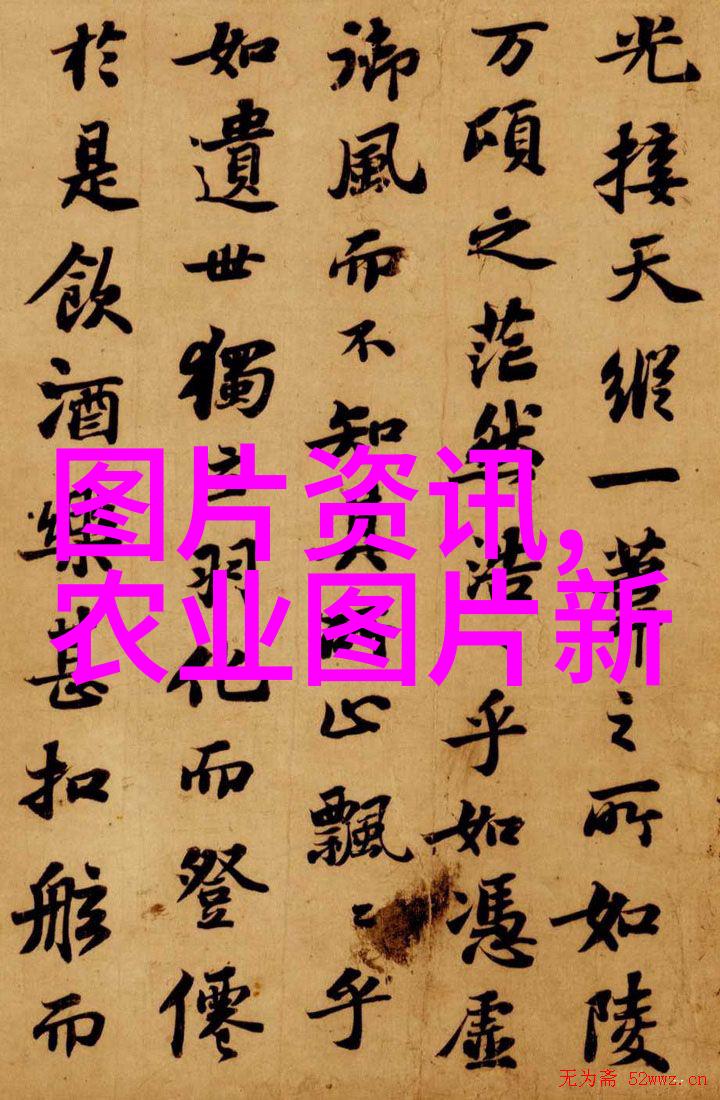 光接天縱一葦之所如陵
万頃之茫然浩〻乎如憑虛
御風而不知其所止飄〻乎
如遺世獨立羽化而登僊
於是飲酒樂甚扣舷而
图片资讯,
农业图片新
无为斋 52wwz.cn